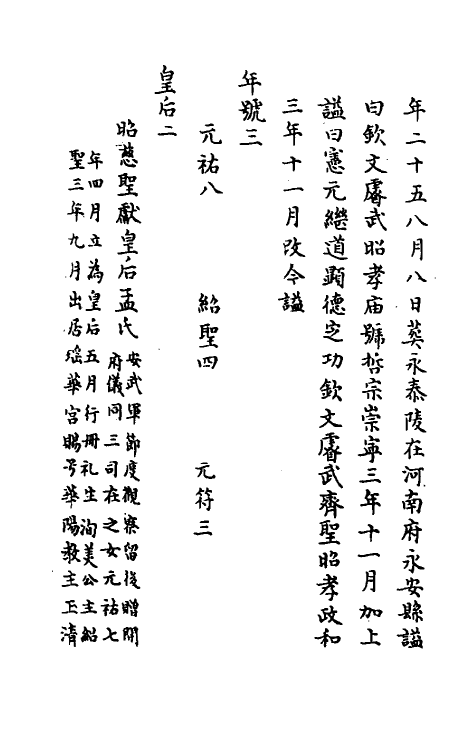 年二十五八月八日葬永泰陵在河南府永安縣謚
曰欽文睿武昭孝庙號哲宗崇寧三年十一月加上
謚曰憲元繼道顯德定功欽文睿武齊聖昭孝政和
三年十一月改今謚
年號三
元祐八 紹聖四 元符三
皇后二
昭慈聖獻皇后孟氏
安武軍節度觀察留後贈開
府儀同三司在之女元祐七
年四月立為皇后五月行冊礼生洵美公主紹
聖三年九月出居瑶華宮賜号華陽教主玉清